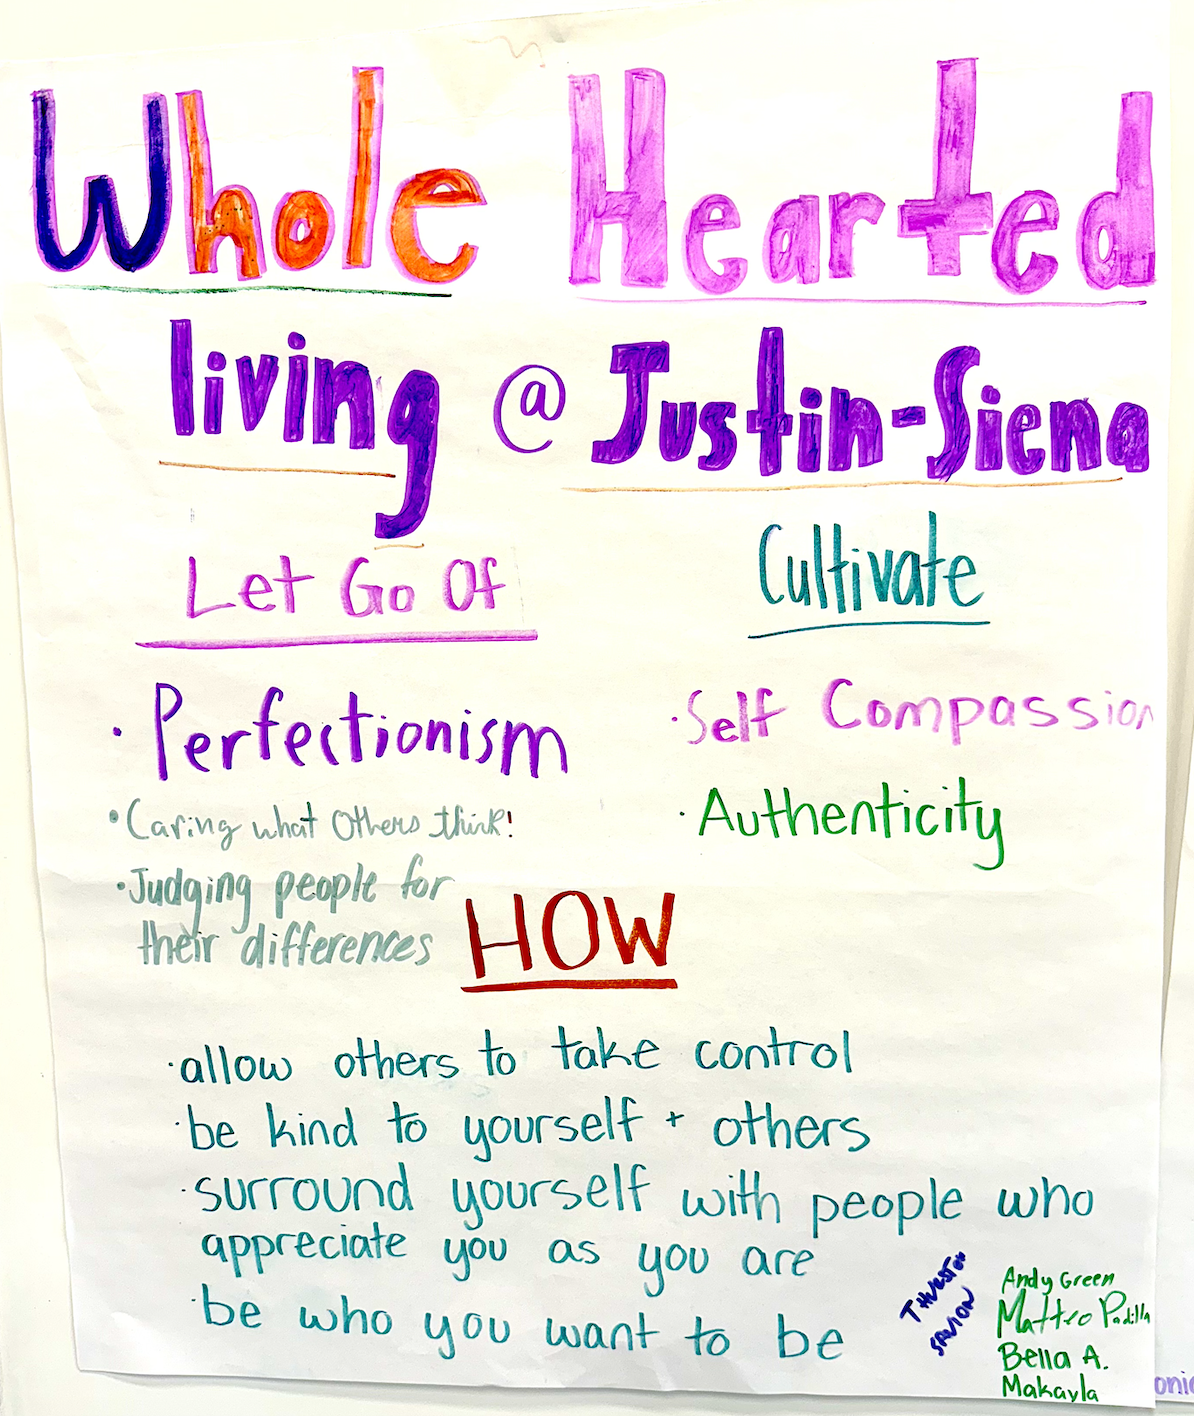 Whole Hearted
living @ Justin-Siena
Let Go Of
· Perfectionism
· Caring what Others think!
· Judging people for
their differences
Cultivate
· Self Compassion
· Authenticity
HOW
· allow others to take control
· be kind to yourself + others
· surround yourself with people who
appreciate you as you are
· be who you want to be
THURSTON
SAVION
Andy Green
Matteo Padilla
Bella A.
Makayla